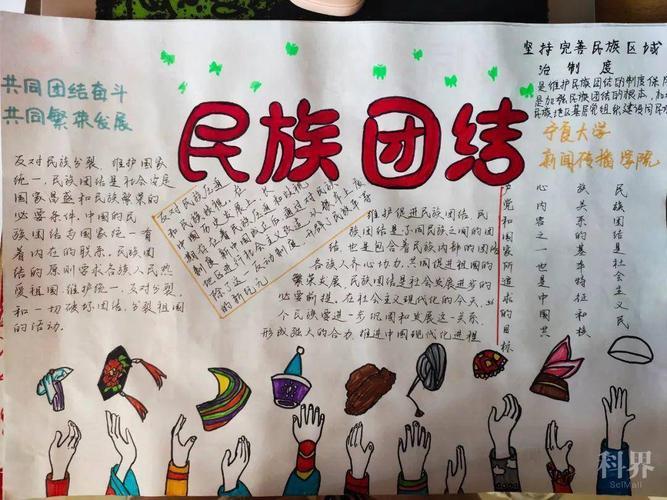 民族团结
共同团结奋斗
共同繁荣发展
坚持完善民族区域
治制度
是维护民族团结的制度保
是加强民族团结的根本
民族地区基层党组织建设同民
宁夏大学
新闻传播学院
反对民族分裂，维护国家
统一，民族团结是社会安定
国家昌盛和民族繁荣的
必要条件，中国的民
族团结与国家统一有
着内在的联系。民族团
结的原则要求各族人民热
爱祖国，维护统一，反对分裂，
和一切破坏团结、分裂祖国
的活动。
反对民族压迫
和民族歧视，在
中国历史发展上，长
期存在着民族压迫和歧视
制度，新中国成立后通过对民族
地区进行社会主义改造，从根本上废
除了这一反动制度，
的新纪元
维护促进民族团结，民
族团结是不同民族之间的团
结，也是包含着民族内部的团结
各族人齐心协力，共同促进祖国的
繁荣发展，民族团结是社会发展进步的
必要前提，在社会主义现代化的今天，
个民族要进一步巩固和发展这一关系，
形成强大的合力，推进中国现代化进程
民族团结是社会主义民
族关系的基本特征和核
心内容之一也是中国共
产党和国家所追求的目标
科界
SciMall